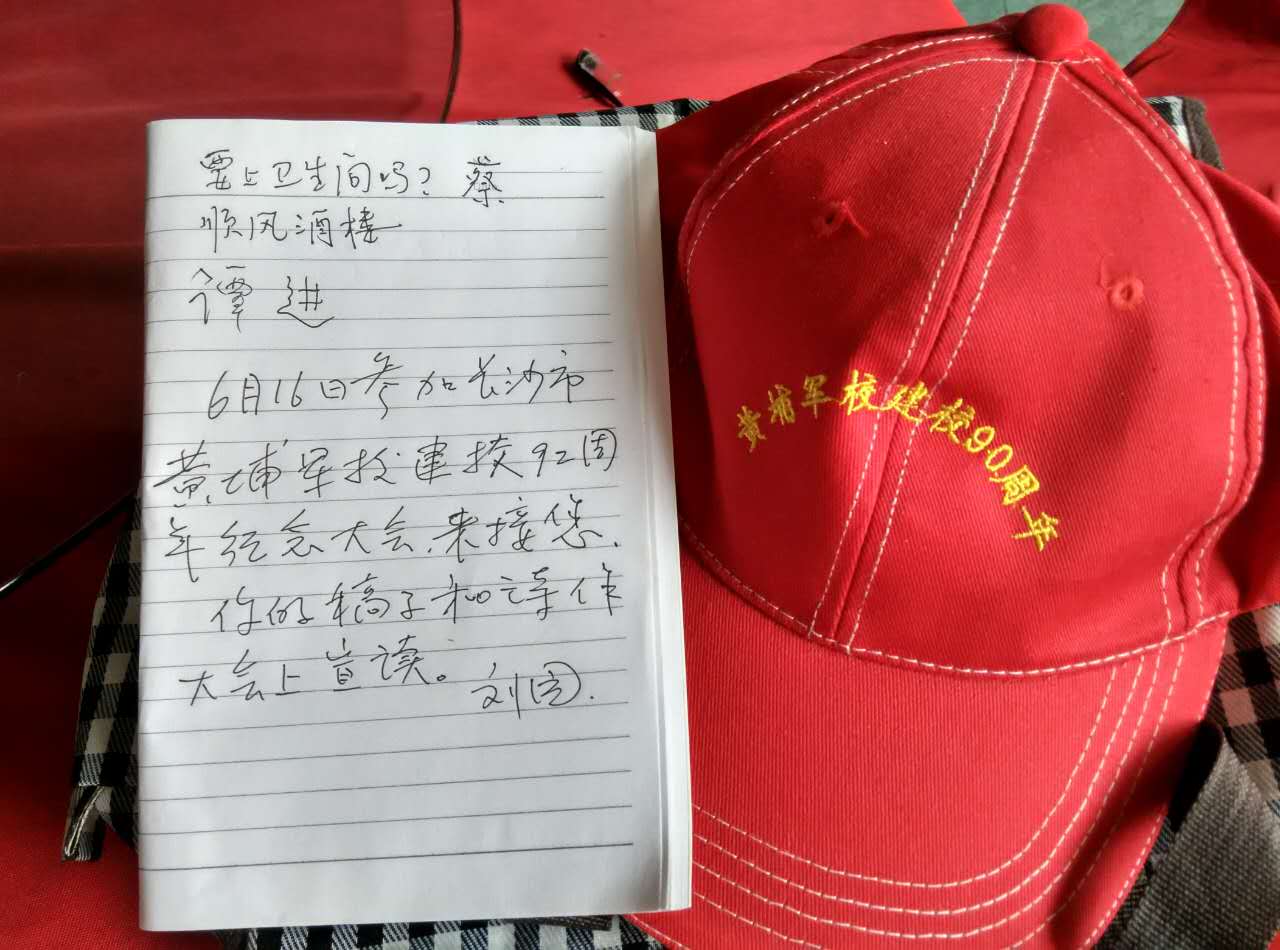 要上卫生间吗？蔡
顺风酒楼
谭进
6月16日参加长沙市
黄埔军校建校92周
年纪念大会，来接您，
你的稿子和诗作
大会上宣读。刘
黄埔军校建校90周年